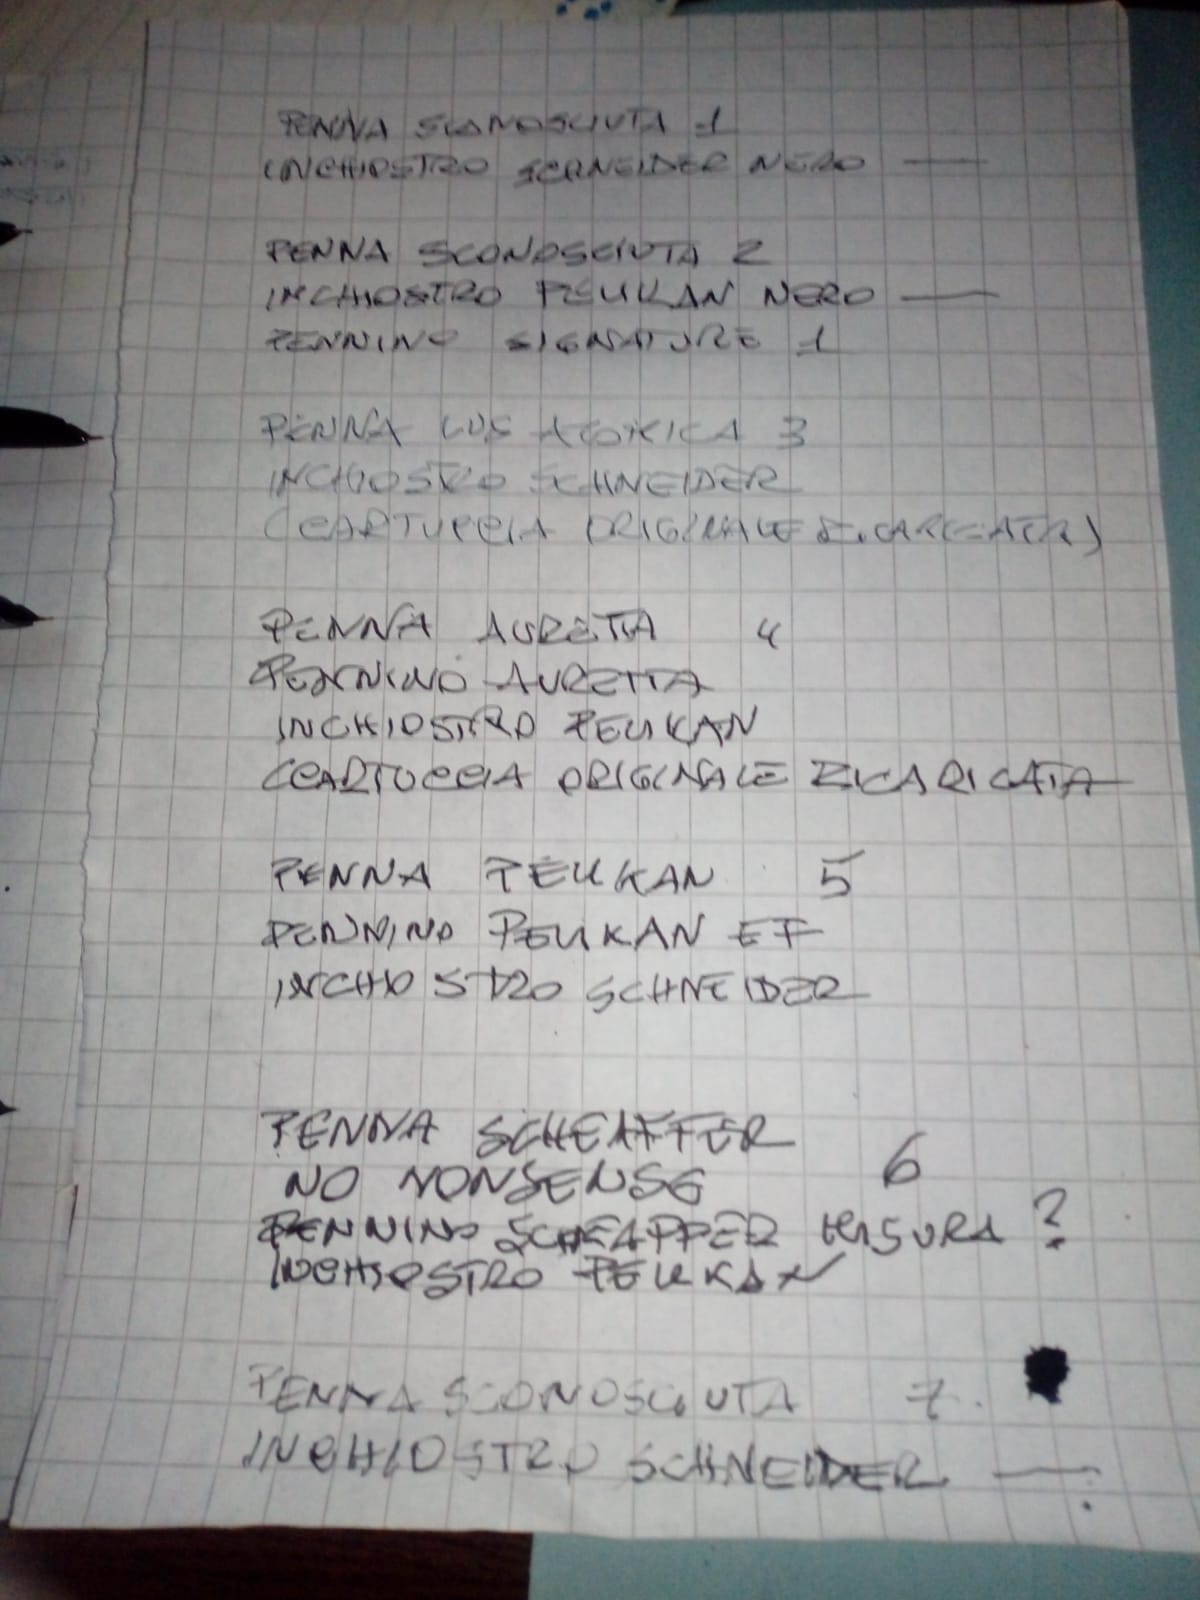 PENNA SCONOSCIUTA 1
INCHIOSTRO SCHNEIDER NERO —
PENNA SCONOSCIUTA 2
INCHIOSTRO PELIKAN NERO —
PENNINO SIGNATURE 1
PENNA LUS ATOMICA 3
INCHIOSTRO SCHNEIDER
(CARTUCCIA ORIGINALE RICARICATA)
PENNA AURETTA 4
PENNINO AURETTA
INCHIOSTRO PELIKAN
CARTUCCIA ORIGINALE RICARICATA
PENNA PELIKAN 5
PENNINO PELIKAN EF
INCHIOSTRO SCHNEIDER
PENNA SCHEAFFER
NO NONSENSE 6
PENNINO SCHEAFFER MISURA ?
INCHIOSTRO PELIKAN
PENNA SCONOSCIUTA 7.
INCHIOSTRO SCHNEIDER —